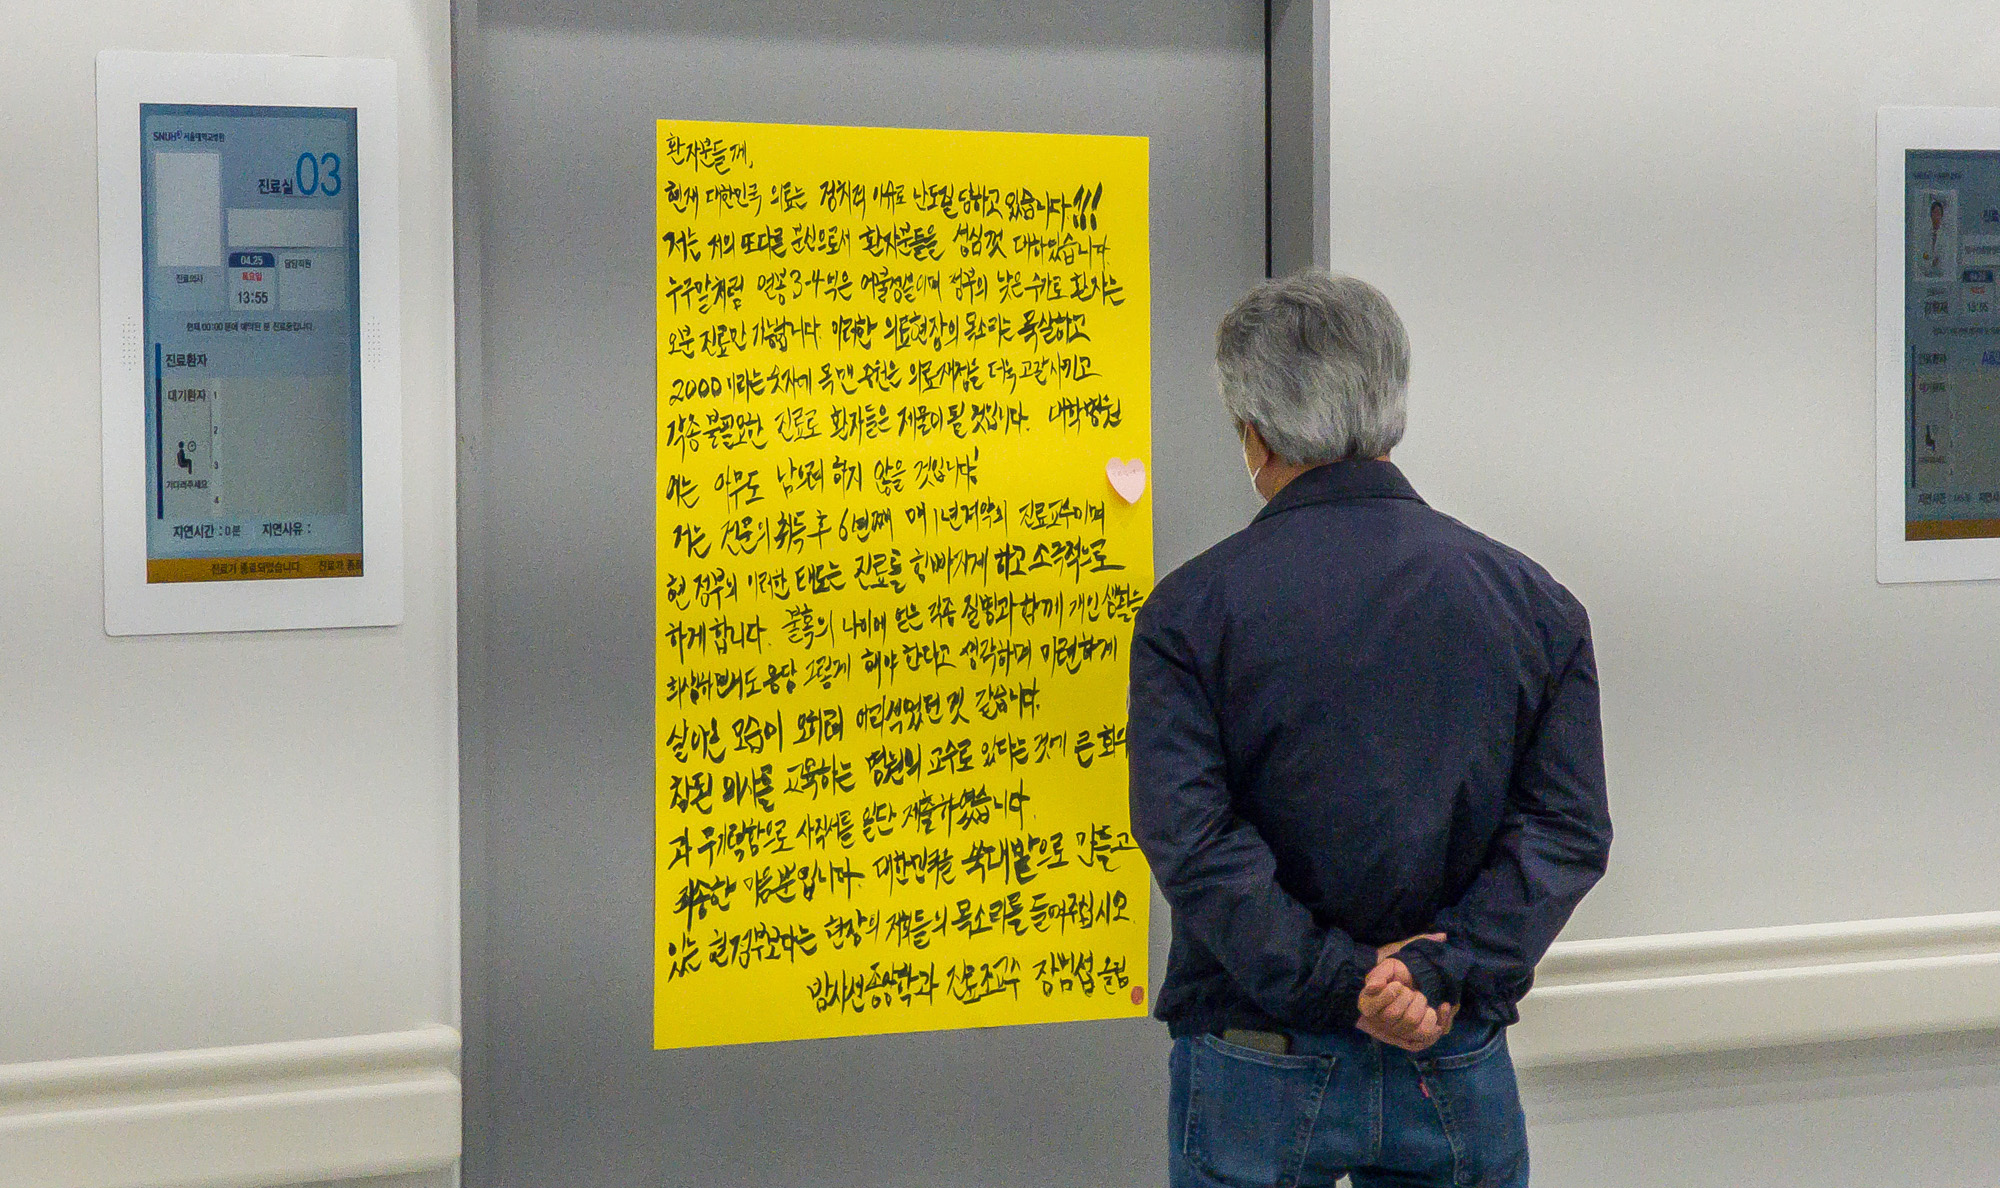 SNUH 서울대학교병원
진료실 03
진료의사
04.25
목요일
13:55
담당직원
현재 00:00 분에 예약된 분 진료중입니다
진료환자
대기환자 1
2
3
기다려주세요
4
지연시간 : 0 분 지연사유 :
진료가 종료되었습니다. 진료가 종료
환자분들께,
현재 대한민국 의료는 정치적 이유로 난도질 당하고 있습니다!!!
저는 저의 또다른 분신으로서 환자분들을 성심껏 대하였습니다.
누구말처럼 연봉 3-4억은 어불성설이며 정부의 낮은 수가로 환자는
오분 진료만 가능합니다. 이러한 의료현장의 목소리는 묵살하고
2000이라는 숫자에 목맨 의료재정을 더욱 고갈시키고
각종 불필요한 진료로 환자들은 제물이 될 것입니다. 대학병원
에는 아무도 남으려 하지 않을 것입니다!
저는 전문의 취득 후 6년째 매 1년 계약의 진료교수이며
현 정부의 이러한 태도는 진료를 힘빠지게 하고 소극적으로
하게 합니다. 불혹의 나이에 얻은 각종 질병과 함께 개인 생활을
희생하면서도 응당 그렇게 해야 한다고 생각하며 미련하게
살아온 모습이 오히려 어리석었던 것 같습니다.
참된 의사를 교육하는 병원의 교수로 있다는 것에 큰 회의
과 무기력함으로 사직서를 일단 제출하였습니다.
죄송한 마음뿐입니다. 대한민국을 쑥대밭으로 만들고
있는 현정부보다는 현장의 저희들의 목소리를 들어주십시오.
방사선종양학과 진료조교수 장범섭 올림
진료
04.25
13:55
진료환자
대기환자
지연시간